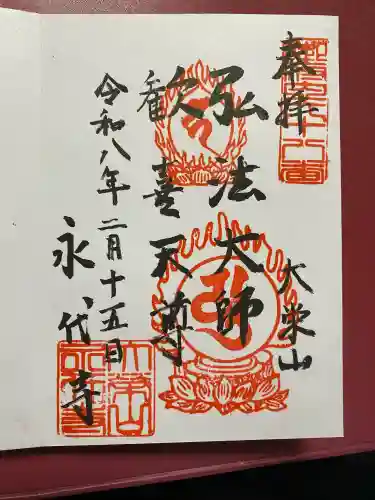 奉拝
大栄山
弘法大師
歡喜天尊
令和八年二月十五日
永代寺